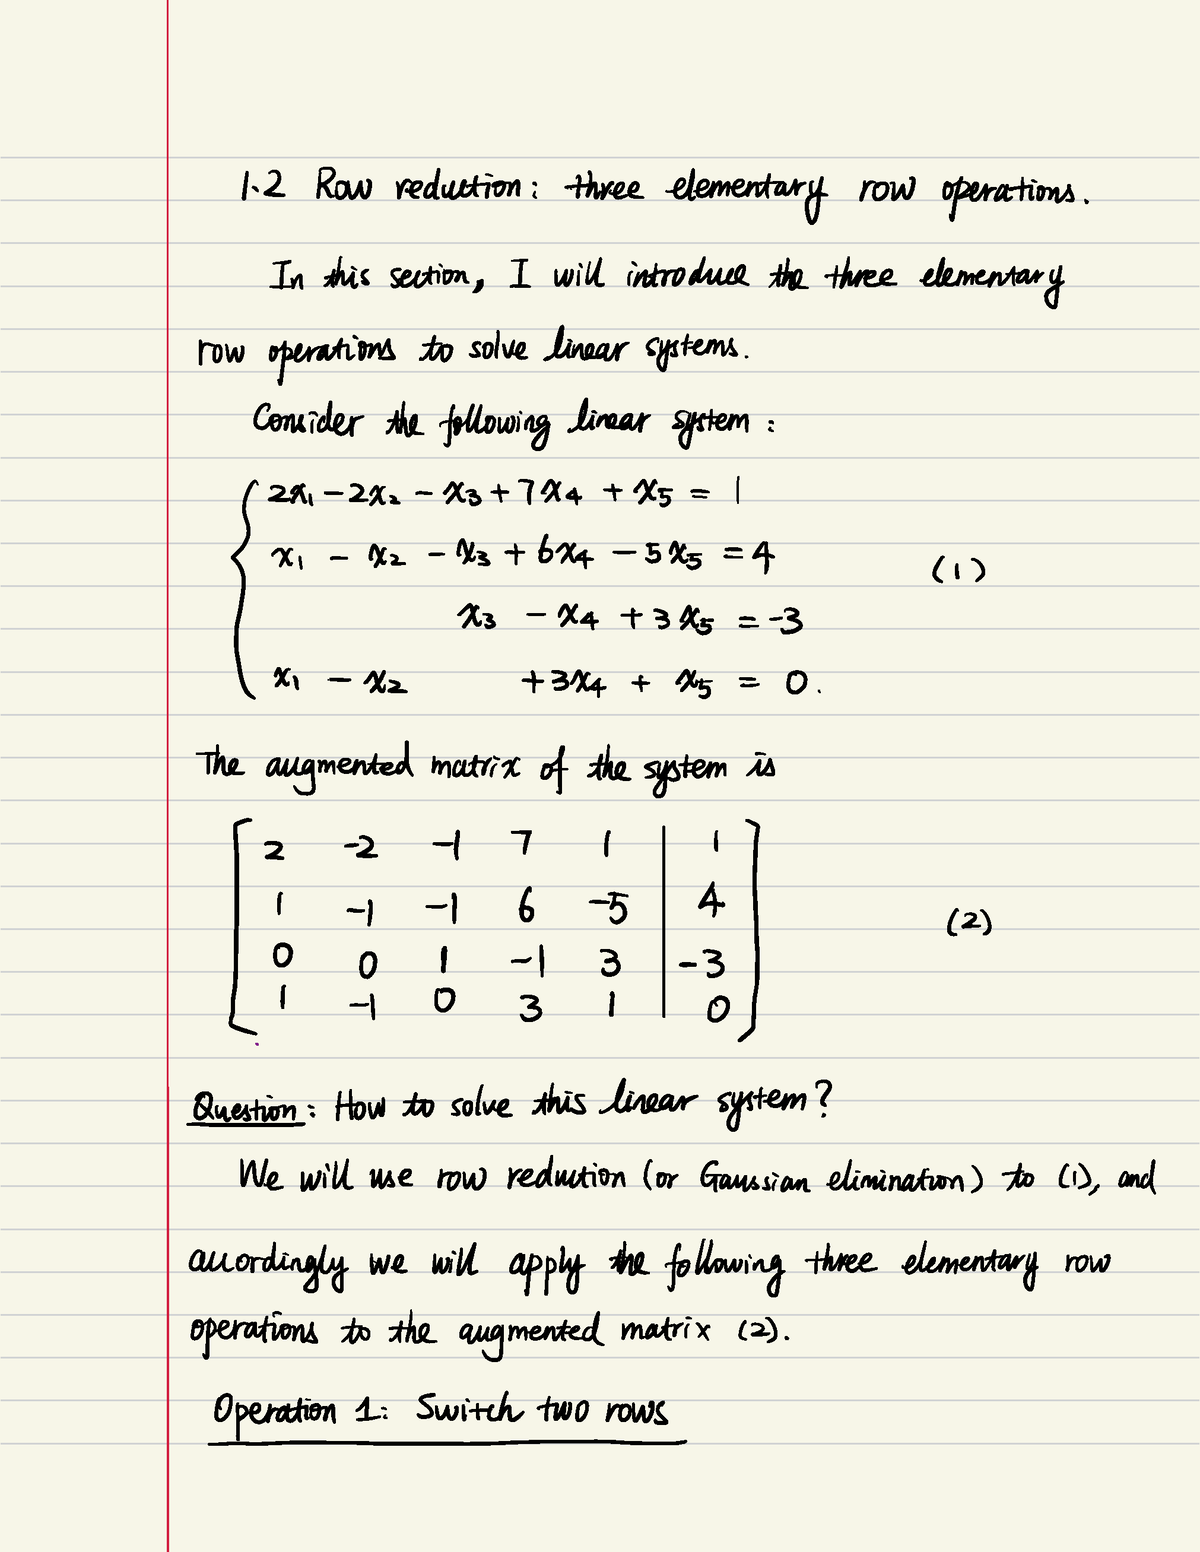 1.2 Row reduction: three elementary row operations.
In this section, I will introduce the three elementary
row operations to solve linear systems.
Consider the following linear system:
2x₁ - 2x₂ - x₃ + 7x₄ + x₅ = 1
x₁ - x₂ - x₃ + 6x₄ - 5x₅ = 4
(1)
x₃ - x₄ + 3x₅ = -3
x₁ - x₂ + 3x₄ + x₅ = 0.
The augmented matrix of the system is
2 -2 -1 7 1 | 1
1 -1 -1 6 -5 | 4
(2)
0 0 1 -1 3 | -3
1 -1 0 3 1 | 0
Question: How to solve this linear system?
We will use row reduction (or Gaussian elimination) to (1), and
accordingly we will apply the following three elementary row
operations to the augmented matrix (2).
Operation 1: Switch two rows